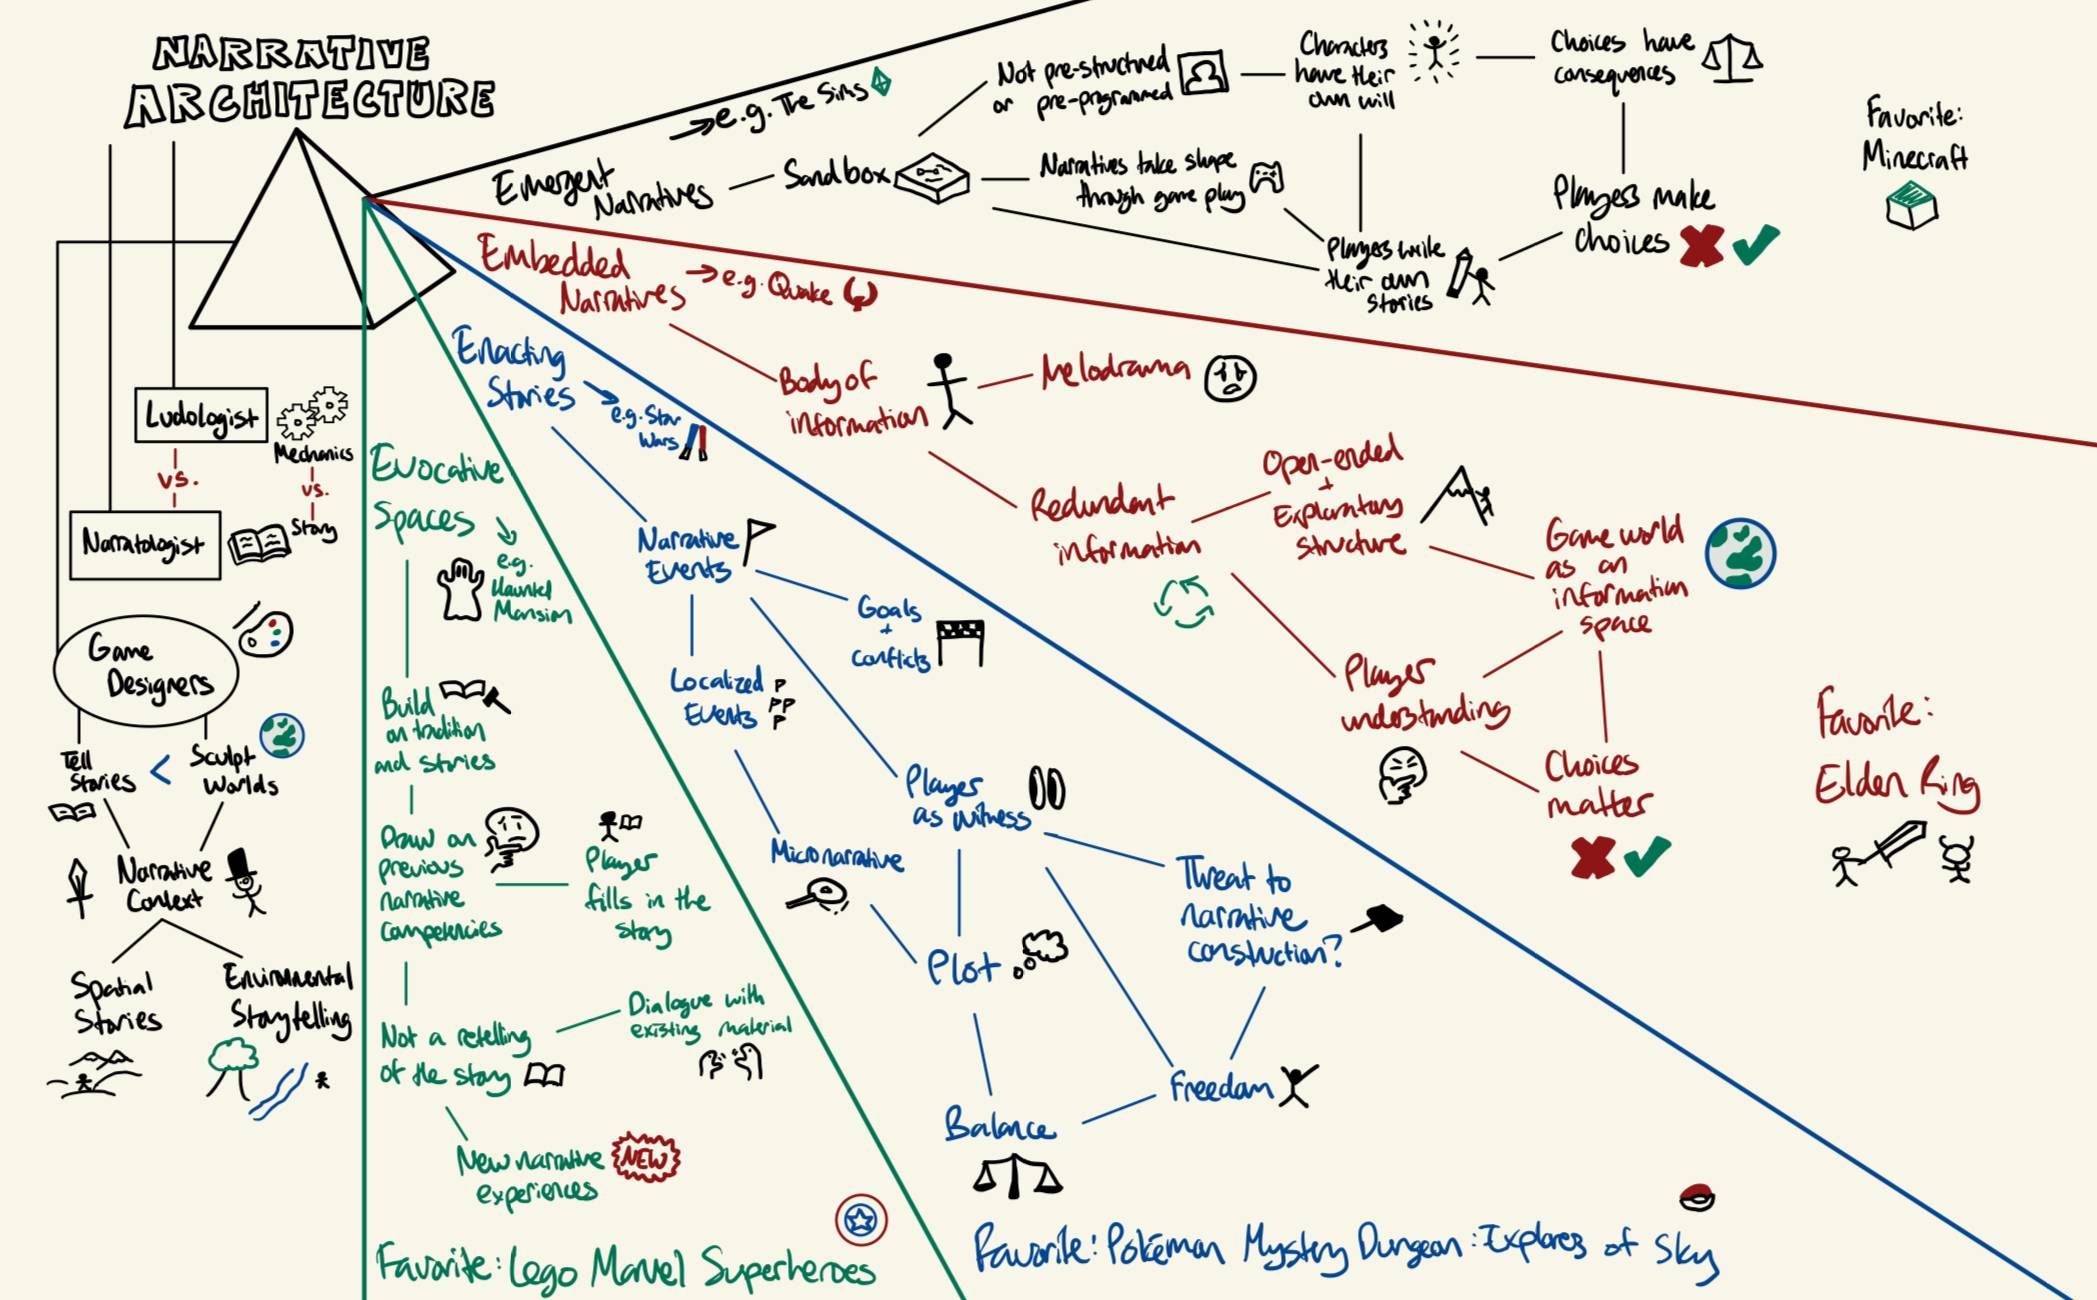 NARRATIVE
ARCHITECTURE
Ludologist
vs.
Narratologist
Mechanics
vs.
Story
Game
Designers
Tell
Stories
<
Sculpt
Worlds
Narrative
Context
Spatial
Stories
Environmental
Storytelling
Emergent
Narratives
→ e.g. The Sims
Sandbox
Not pre-structured
or pre-programmed
Characters
have their
own will
Choices have
consequences
Narratives take shape
through game play
Players write
their own
stories
Players make
choices
Favorite:
Minecraft
Embedded
Narratives
→ e.g. Quake
Body of
information
Melodrama
Redundant
information
Open-ended
+
Exploratory
structure
Game world
as an
information
space
Player
understanding
Choices
matter
Favorite:
Elden Ring
Enacting
Stories
→ e.g. Star
Wars
Narrative
Events
Goals
+
Conflicts
Localized
Events
Player
as witness
Micronarrative
Plot
Threat to
narrative
construction?
Freedom
Balance
Favorite: Pokémon Mystery Dungeon: Explorers of Sky
Evocative
Spaces
→ e.g.
Haunted
Mansion
Build
on tradition
and stories
Draw on
previous
narrative
competencies
Player
fills in the
story
Not a retelling
of the story
Dialogue with
existing material
New narrative
experiences
NEW
Favorite: Lego Marvel Superheroes